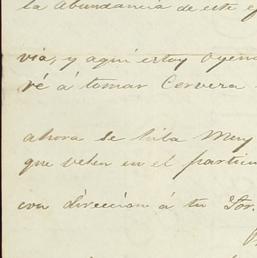 la abundancia de este
via, y aqui estoy oyen
ré á tomar Cervera
ahora se
que veker en el particu
con direccion á tu Sor.